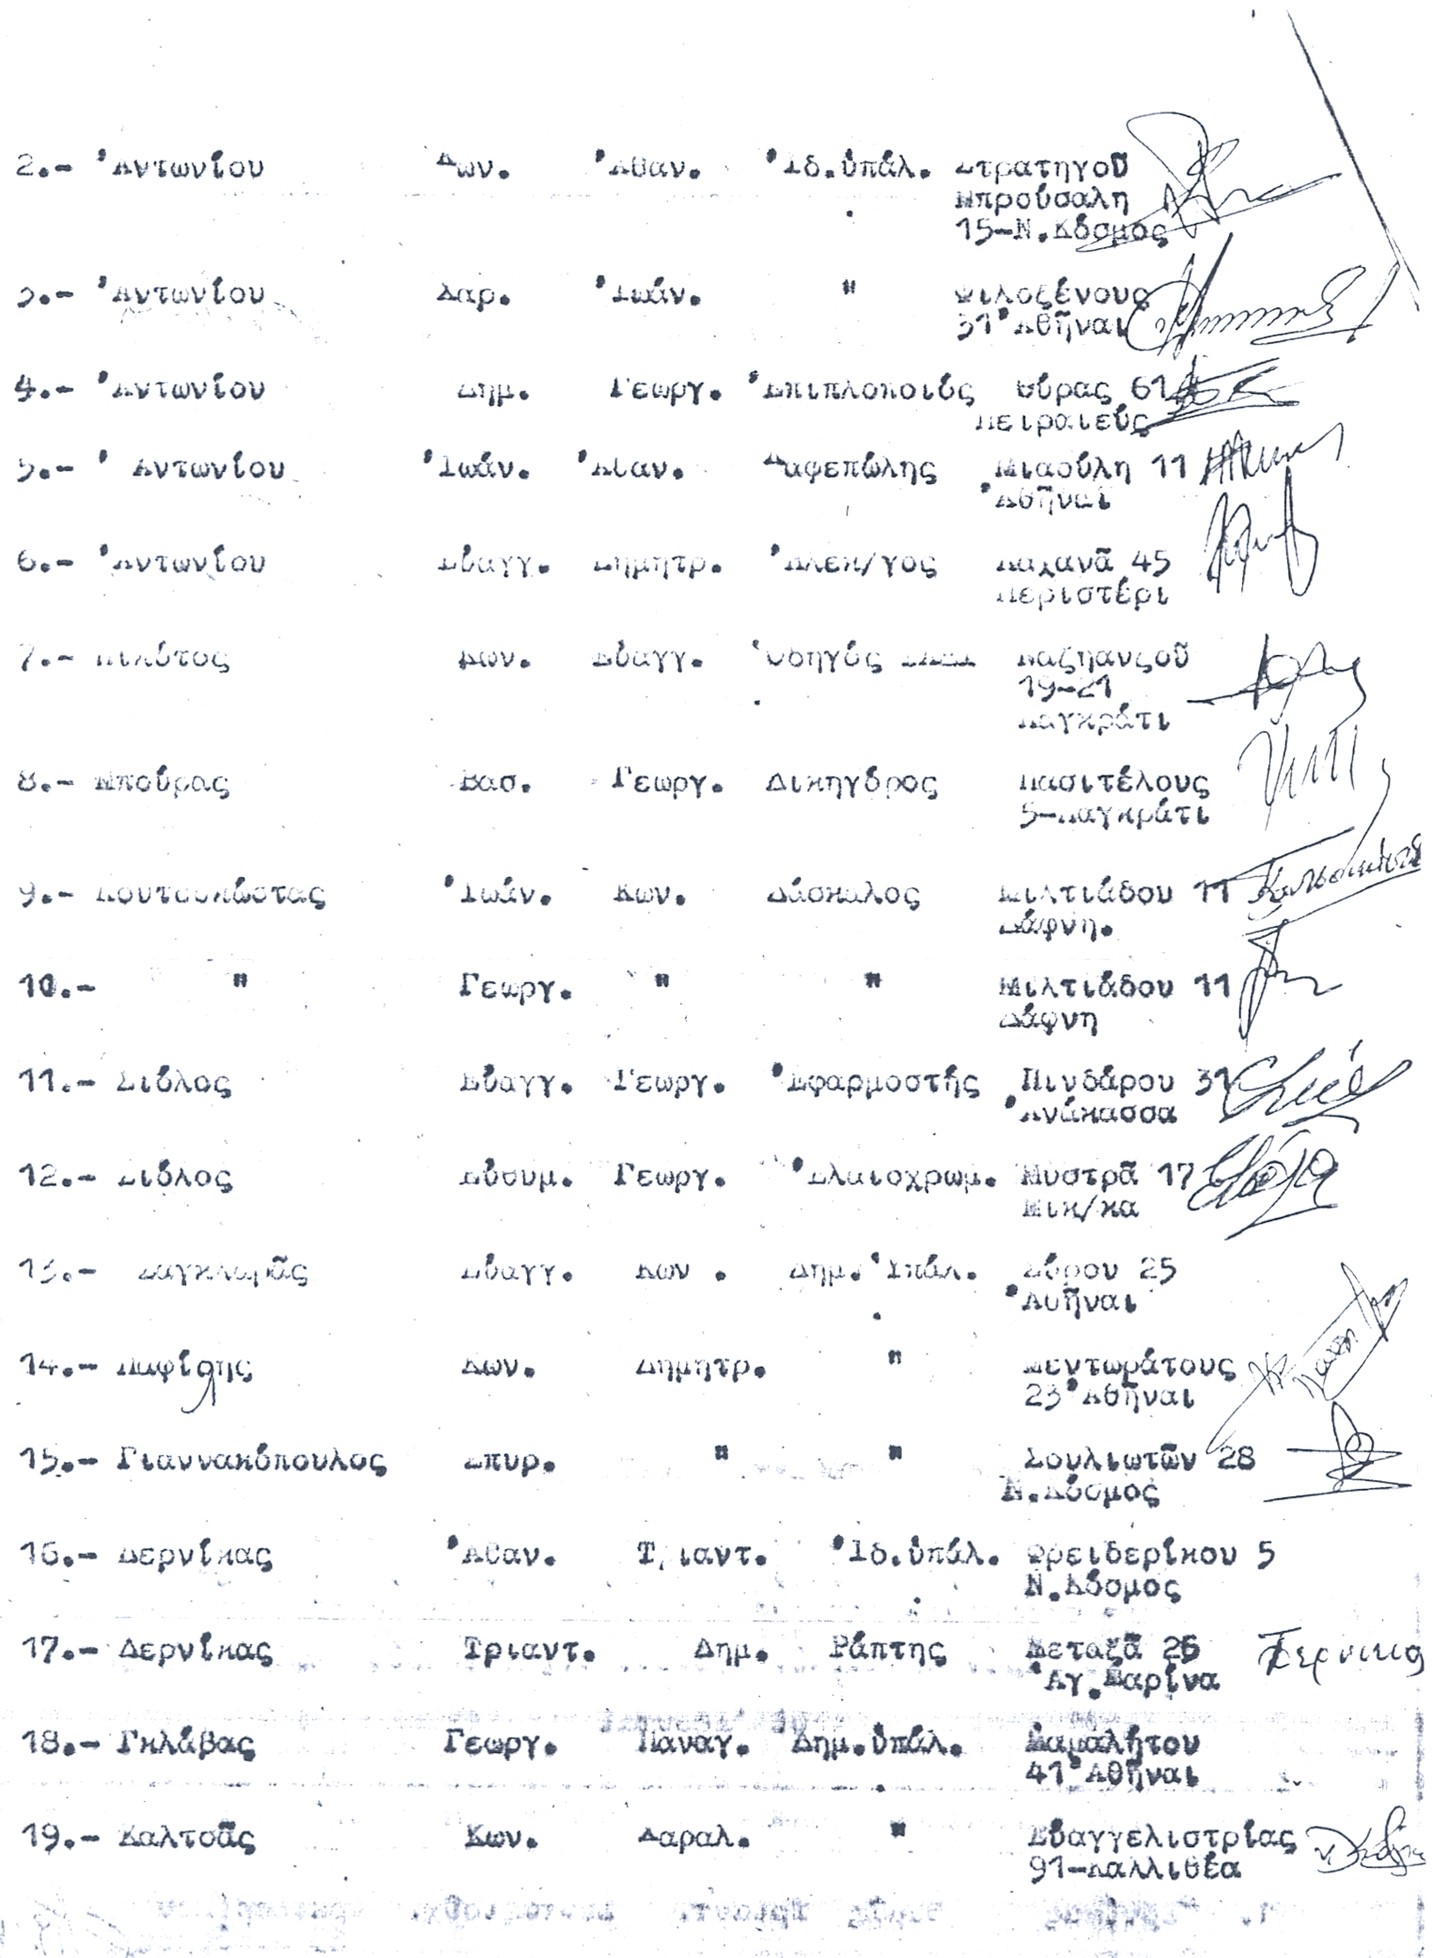 2.- 'Αντωνίου Κων. 'Αθαν. 'Ιδ.ὑπάλ. Στρατηγοῦ
Μπρούσαλη
15-Ν.Κόσμος
3.- 'Αντωνίου Χαρ. 'Ιωάν. " Φιλοξένους
31'Αθῆναι
4.- 'Αντωνίου Δημ. Γεωργ. 'Επιπλοποιός Θύρας 61
Πειραιεύς
5.- ' Αντωνίου 'Ιωάν. 'Αθαν. Μιαούλη 11
'Αθῆναι
6.- 'Αντωνίου Εὐαγγ. Δημητρ. Λαχανᾶ 45
Περιστέρι
7.- Κων. Εὐαγγ. 'Οδηγός
19-21
Παγκράτι
8.- Μπούρας Βασ. Γεωργ. Δικηγόρος Πασιτέλους
5-Παγκράτι
9.- Κουτσοκώστας 'Ιωάν. Κων. Δάσκαλος Μιλτιάδου 11
Δάφνη.
10.- " Γεωργ. " " Μιλτιάδου 11
Δάφνη
11.- Σιόλος Εὐαγγ. Γεωργ. 'Εφαρμοστής Πινδάρου 31
'Ανάκασσα
12.- Σιόλος Εὐθυμ. Γεωργ. 'Ελαιοχρωμ. Μυστρᾶ 17
13.- Εὐαγγ. Κων . Δημ.'Υπάλ. Σύρου 25
'Αθῆναι
14.- Κων. Δημητρ. " Ξεντωράτους
23'Αθῆναι
15.- Γιαννακόπουλος Σπυρ. " " Σουλιωτῶν 28
Ν.Κόσμος
16.- Δερνίκας 'Αθαν. Τριαντ. 'Ιδ.ὑπάλ. Φρειδερίκου 5
Ν.Κόσμος
17.- Δερνίκας Τριαντ. Δημ. Ράπτης Μεταξᾶ 26
'Αγ.Μαρίνα
18.- Γκλάβας Γεωργ. Παναγ. Δημ.ὑπάλ.
41'Αθῆναι
19.- Καλτσᾶς Κων. Χαραλ. " Εὐαγγελιστρίας
91-Καλλιθέα